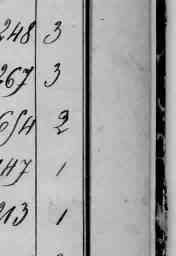 248 3
267 3
654 2
147 1
213 1